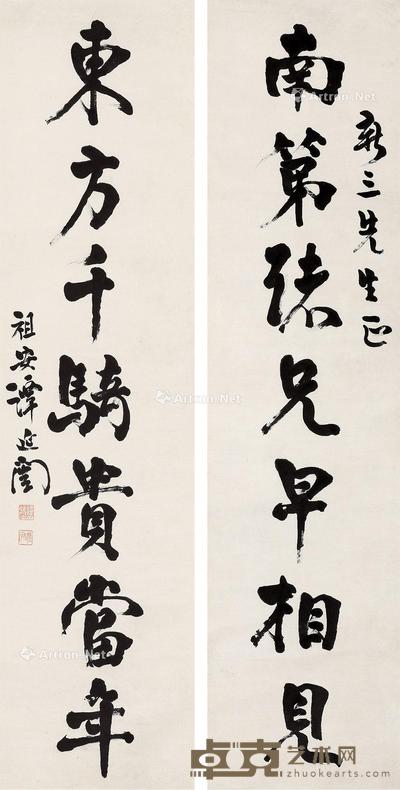 新三先生正
南第诸兄早相見
東方千騎貴當年
祖安譚延闓
Artron.Net
Artron.Net
Artron.Net
Artron.Net
Artron.Net
卓克艺术网
zhuokearts.com